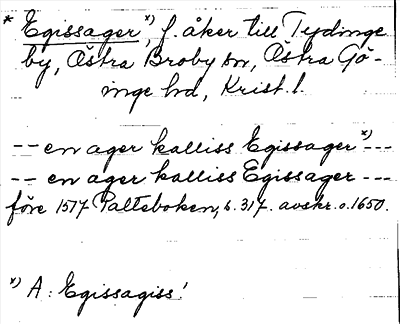 * Egissager*), f. åker till Tydinge
by, Östra Broby sn, Östra Gö-
inge hd, Krist. l.
-- en ager kalliss Egissager*) ---
-- en ager kalliss Egissager ---
före 1517 Palteboken, s. 317. avskr. o. 1650.
*) A: Egissagiss!